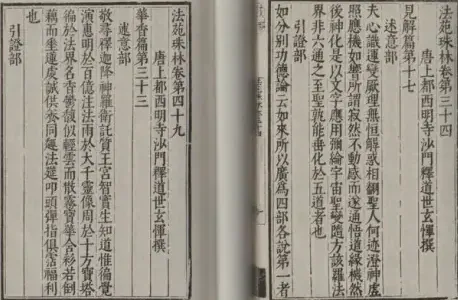 法苑珠林卷第三十四
唐上都西明寺沙門釋道世玄惲撰
見解篇第十七
述意部
夫心識運變厥理無恒解惑相翻聖人何迹澄神虛
照應機如響所謂寂然不動感而遂通悟道緣機然
後神化是以文字應用彌綸宇宙聖變隨方該羅法
界非六通之至聖孰能垂化於五道者也
引證部
如分別功德論云如來所以廣為四部各說第一者
法苑珠林卷第四十九
唐上都西明寺沙門釋道世玄惲撰
華香篇第三十三
述意部
敬尋釋迦降神羅衛託質王宮智實生知道惟獨覺
演惠明於百億注法雨於大千靈像周於十方寶塔
徧於法界名香鬱馥似輕雲而散霧寶華合彩若倒
藕而垂蓮虔誠供養同趣法筵叩頭彈指俱霑福利
也
引證部